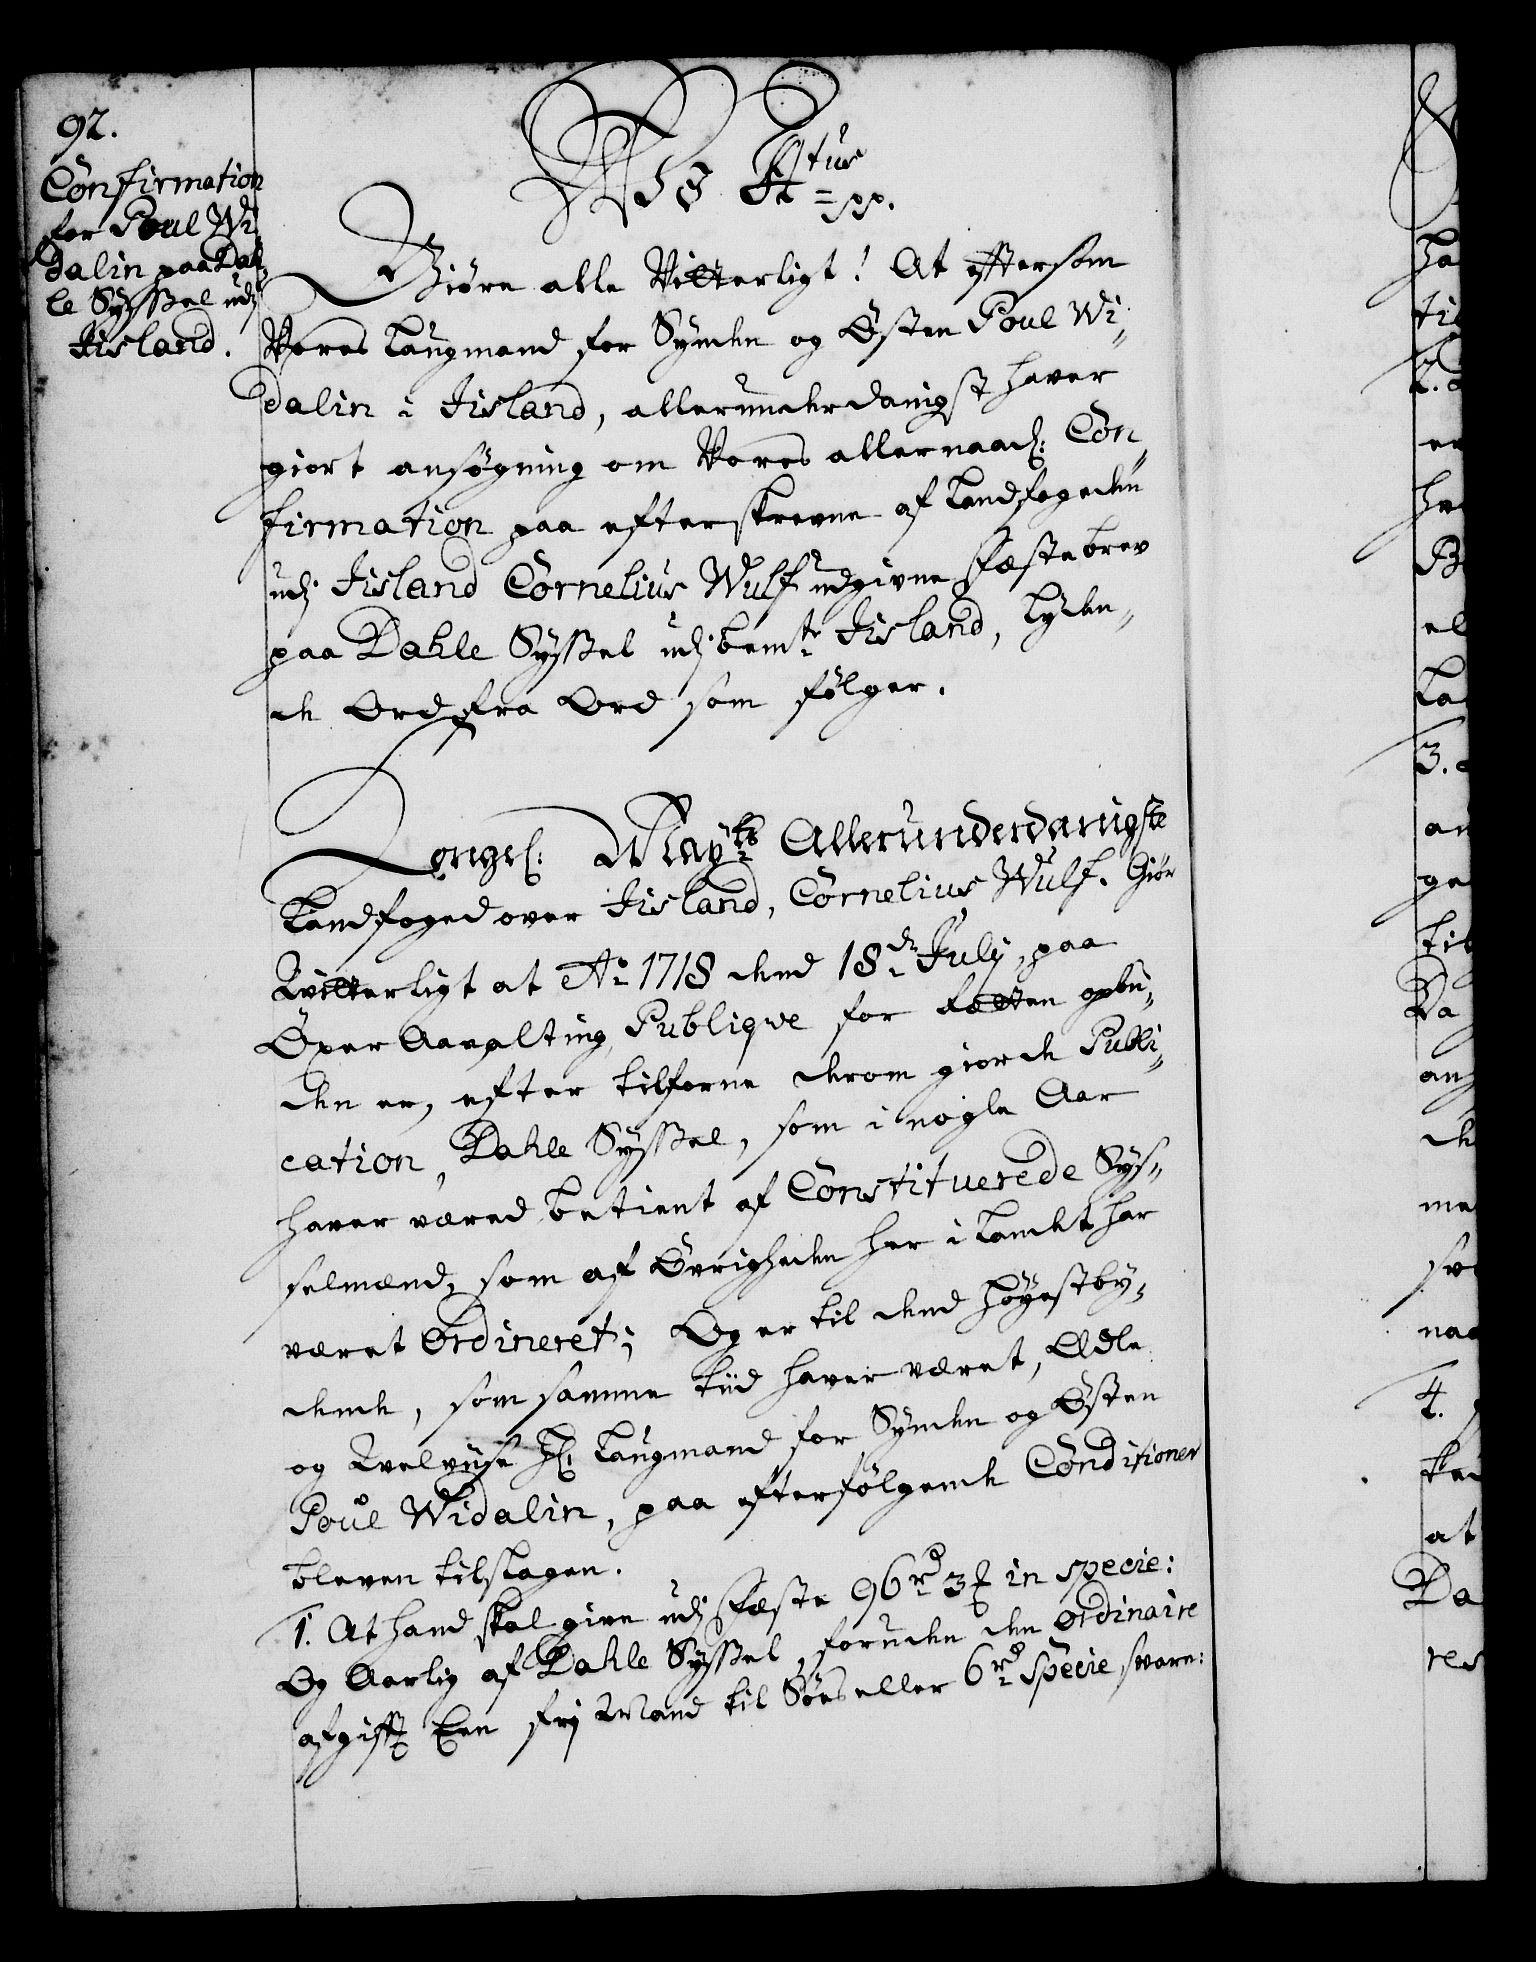 92.
Confirmation
for Poul Wi,,
dalin paa Dah,,
le Syssel udj
Jisland.
Wj Fr. 4tus
= pp.
Giöre alle Vitterligt! At efftersom
Vores Laugmand for Synden og Østen Poul Wi,,
dalin i Jisland, allerunderdanigst haver
giort ansøgning om Vores allernaad: Con,,
firmation paa efterskrevne af Landfogeden
udj Jisland Cornelius Wulf udgivne Fæstebrev
paa Dahle Syssel udj bemte Jisland, lyden,,
de Ord fra Ord som følger.
Kongel: Mayts Allerunderdanigste
Landfoged over Jisland, Cornelius Wulf. Giör
Witterligt at Ao 1718 dend 18de July, paa
Öxer Aaealting, Publiqve for Rætten opbu,,
den er, efter tilforne derom giorde Publi,,
cation, Dahle Syssel, som i nogle Aar
haver været betient af Constituerede Sys,,
selmænd, som af Øvrigheden her i Landet har
været Ordineret; Og er til dend höyestby,,
dende, som samme tiid haver været, Ædle
og Welvise Hr. Laugmand for Synden og Østen
Poul Widalin, paa efterfølgende Conditioner
bleven tilslagen.
1. At hand skal give udj Fæste 96rd 3 in specie:
Og Aarlig af Dahle Syssel, foruden den ordinaire
afgifft Een frj Mand til Söes eller 6rd specie svare: